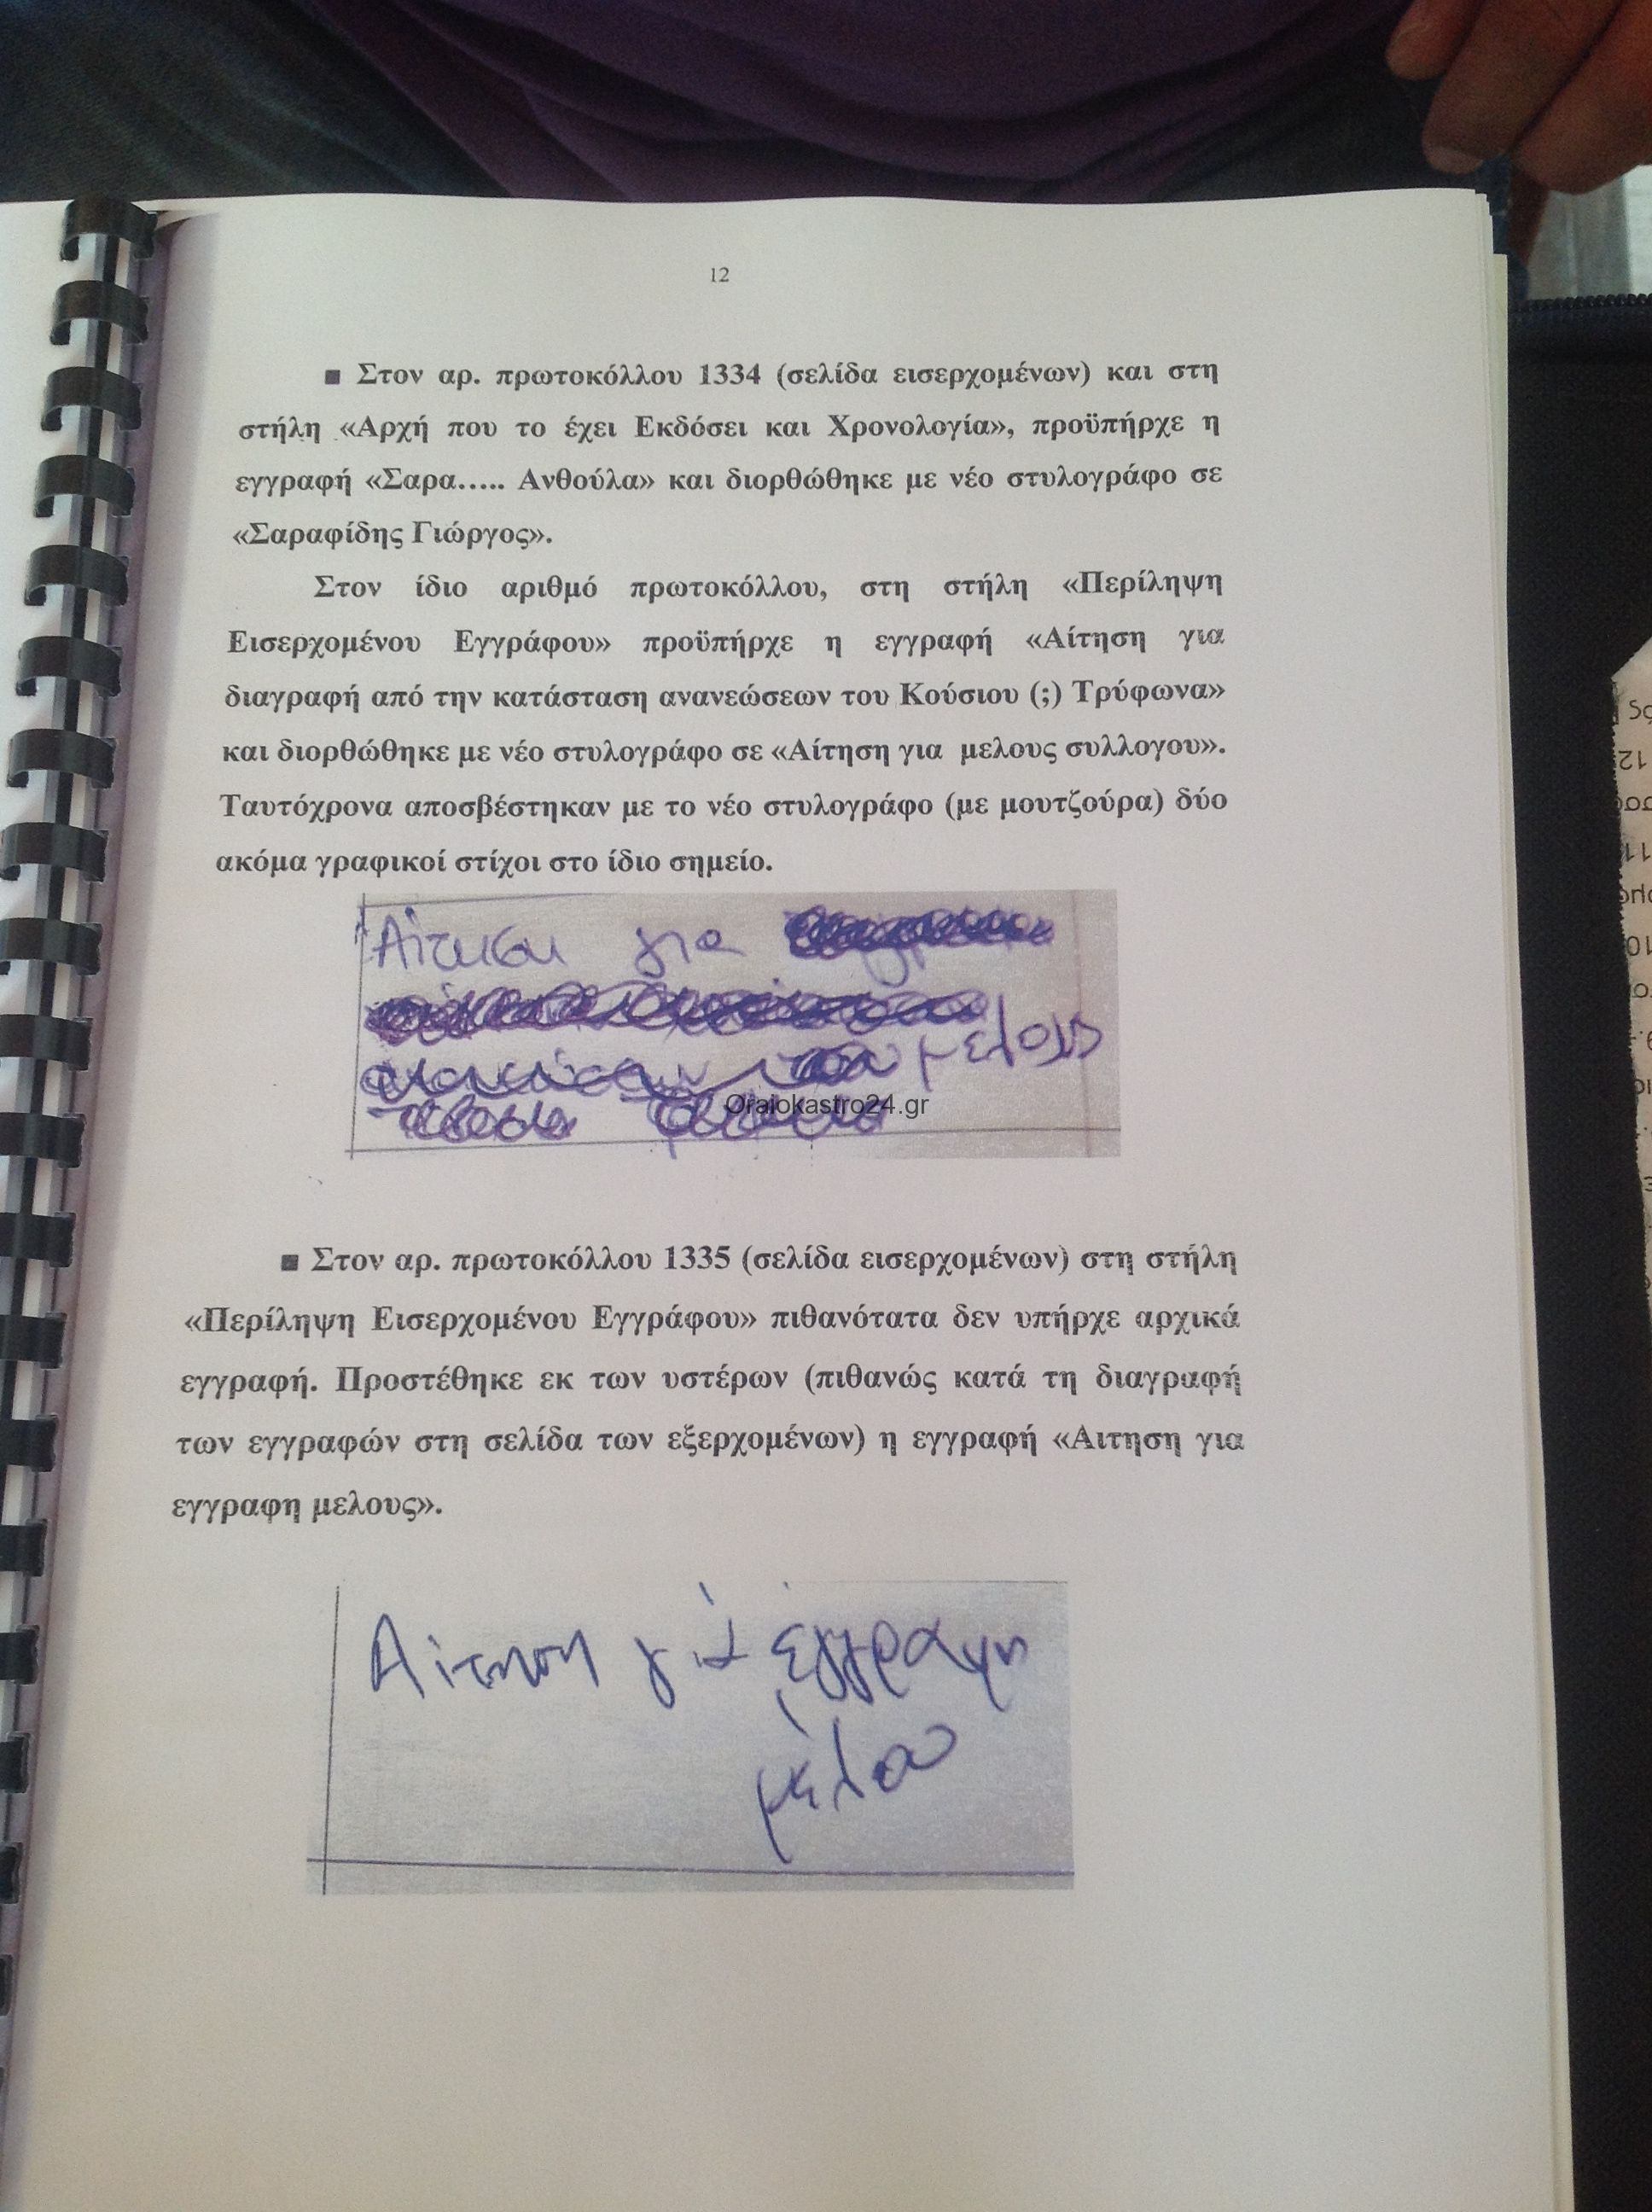 12
▪ Στον αρ. πρωτοκόλλου 1334 (σελίδα εισερχομένων) και στη
στήλη «Αρχή που το έχει Εκδόσει και Χρονολογία», προϋπήρχε η
εγγραφή «Σαρα….. Ανθούλα» και διορθώθηκε με νέο στυλογράφο σε
«Σαραφίδης Γιώργος».
Στον ίδιο αριθμό πρωτοκόλλου, στη στήλη «Περίληψη
Εισερχομένου Εγγράφου» προϋπήρχε η εγγραφή «Αίτηση για
διαγραφή από την κατάσταση ανανεώσεων του Κούσιου (;) Τρύφωνα»
και διορθώθηκε με νέο στυλογράφο σε «Αίτηση για μελους συλλογου».
Ταυτόχρονα αποσβέστηκαν με το νέο στυλογράφο (με μουτζούρα) δύο
ακόμα γραφικοί στίχοι στο ίδιο σημείο.
Αίτηση για
μελους
Oraiokastro24.gr
▪ Στον αρ. πρωτοκόλλου 1335 (σελίδα εισερχομένων) στη στήλη
«Περίληψη Εισερχομένου Εγγράφου» πιθανότατα δεν υπήρχε αρχικά
εγγραφή. Προστέθηκε εκ των υστέρων (πιθανώς κατά τη διαγραφή
των εγγραφών στη σελίδα των εξερχομένων) η εγγραφή «Αιτηση για
εγγραφη μελους».
Αίτηση για εγγραφη
μέλου